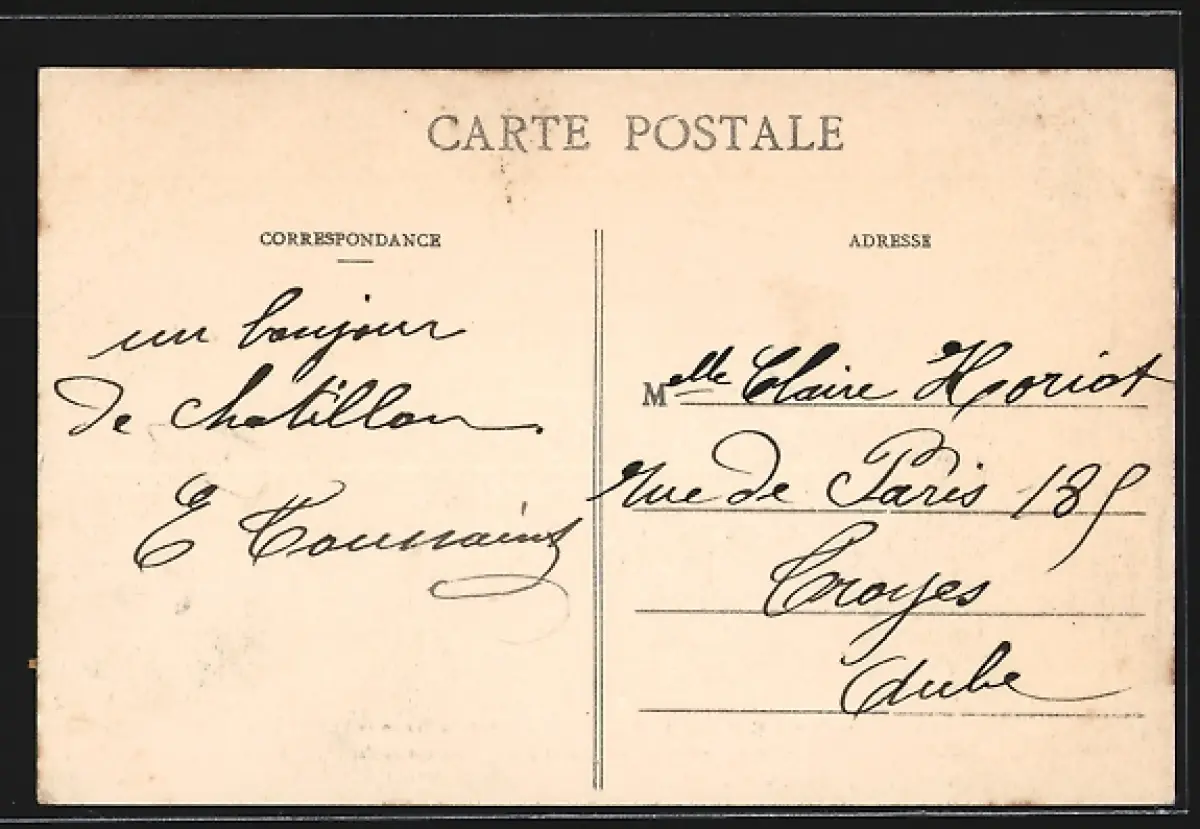 CARTE POSTALE
CORRESPONDANCE
un bonjour
de Chatillon.
E Toussaint
ADRESSE
Melle Claire Horiot
Rue de Paris
Troyes
Aube